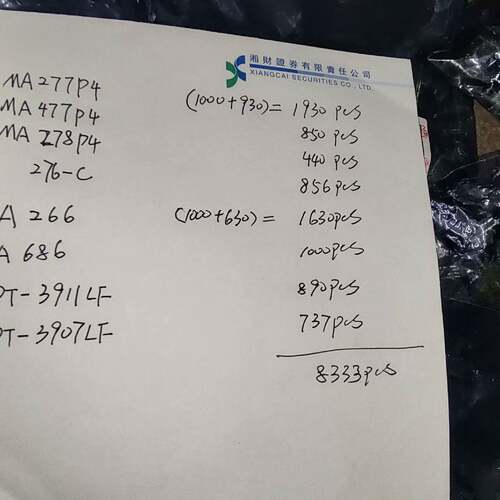 湘財證券有限責任公司
XIANGCAI SECURITIES CO., LTD.
MA277P4 (1000+930)= 1930 pcs
MA477P4 850 pcs
MA278P4 440 pcs
276-C 856 pcs
A 266 (1000+630)= 1630pcs
A 686 1000pcs
PT-3911LF 890pcs
PT-3907LF 737pcs
8333pcs